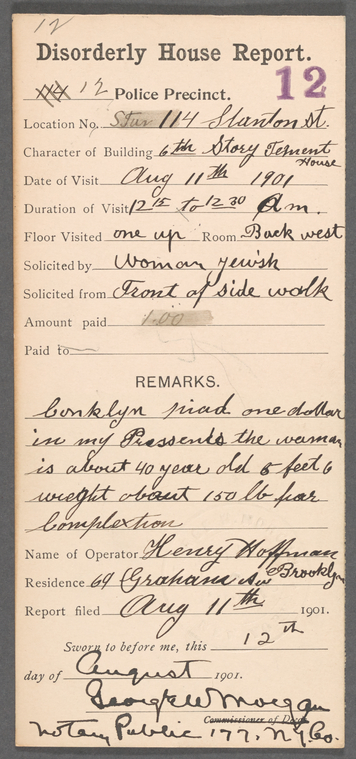 12
Disorderly House Report.
12
12 Police Precinct.
Location No. 114 Stanton St.
Character of Building 6th Story Tement House
Date of Visit Aug 11th 1901
Duration of Visit 12 15 to 12 30 Am.
Floor Visited one up Room Back west
Solicited by Woman Jewish
Solicited from Front of side walk
Amount paid 1.00
Paid to
REMARKS.
Conklyn piad one dollar
in my Pressents the woman
is about 40 year old 5 feet 6
wieght about 150 lb far
Complextion
Name of Operator Henry Hoffman
Residence 69 Graham Ave Brooklyn
Report filed Aug 11th 1901.
Sworn to before me, this 12th
day of August 1901.
George W Morgan
Commissioner of Deeds
Notary Public 177, N.Y. Co.